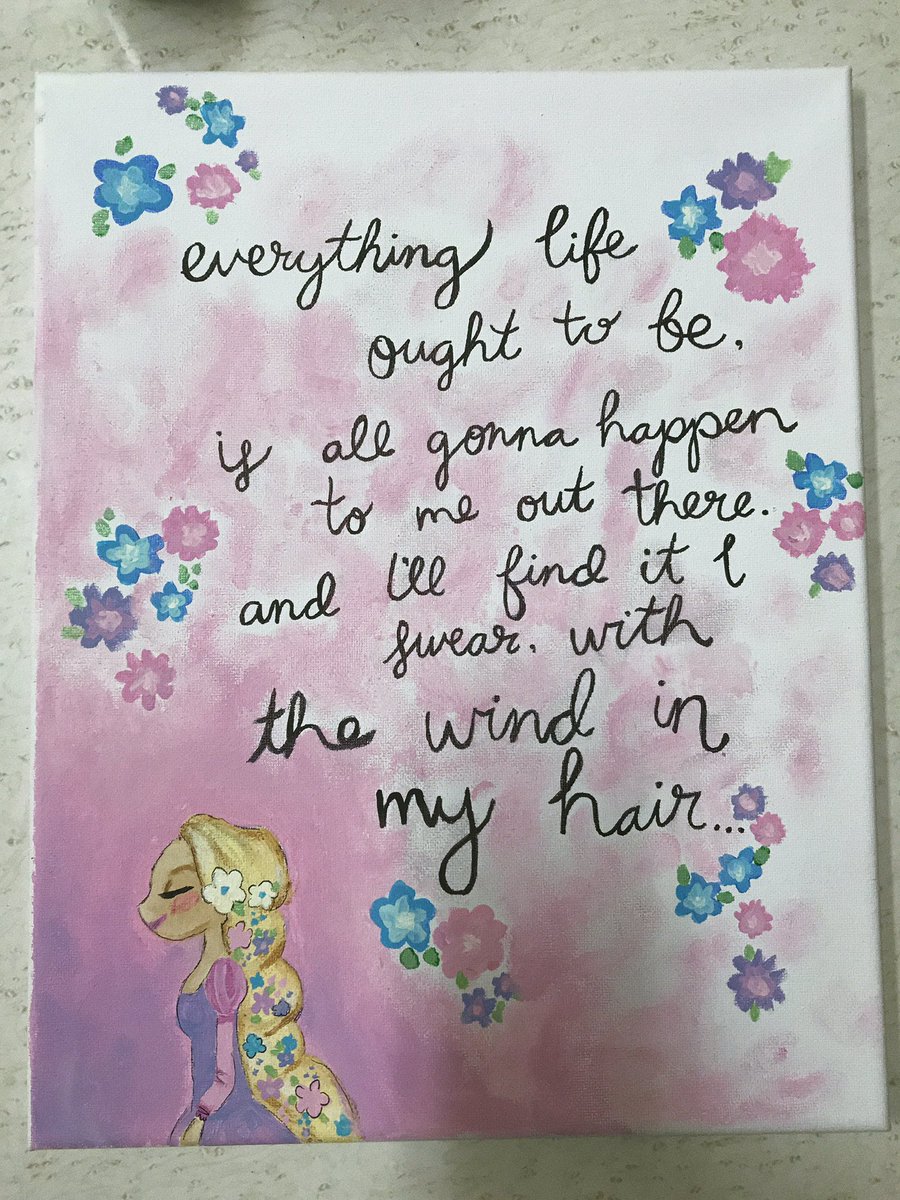 everything life
ought to be,
is all gonna happen
to me out there.
and I'll find it I
swear. with
the wind in
my hair...